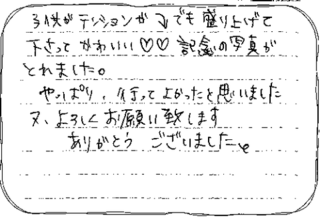 子供がテンションが↘でも盛り上げて
下さってかわいい♡♡ 記念の写真が
とれました。
やっぱり、行ってよかったと思いました
又、よろしくお願い致します
ありがとう ございました。